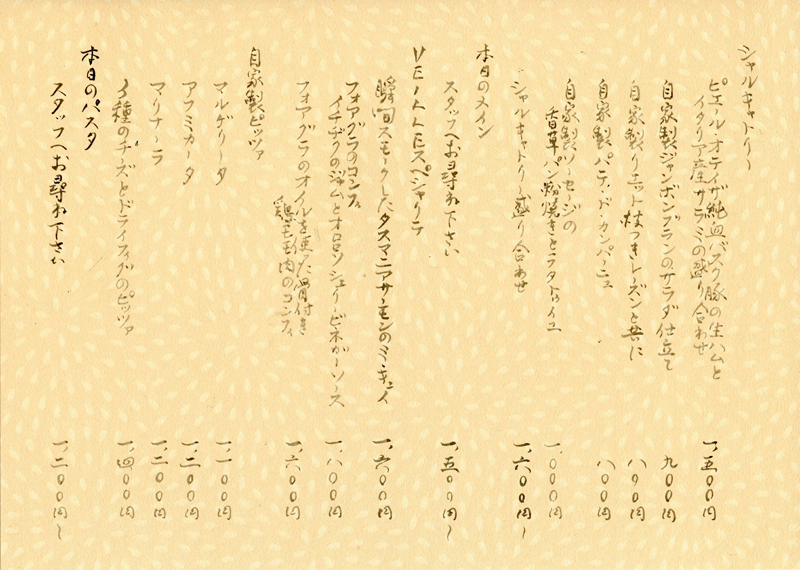 シャルキュトリー
ピエール・オテイザ純血バスク豚の生ハムと
イタリア産サラミの盛り合わせ 一、五〇〇円
自家製ジャンボンブランのサラダ仕立て 九〇〇円
自家製リエット 枝つきレーズンと共に 八〇〇円
自家製パテ・ド・カンパーニュ 八〇〇円
自家製ソーセージの
香草パン粉焼きとラタトゥイユ 一、〇〇〇円
シャルキュトリー盛り合わせ 一、六〇〇円〜
本日のメイン
スタッフへお尋ね下さい 一、五〇〇円〜
VEILLEスペシャリテ
瞬間スモークしたタスマニアサーモンのミ・キュイ 一、六〇〇円
フォアグラのコンフィ
イチヂクのジャムとオロロソシェリービネガーソース 一、八〇〇円
フォアグラのオイルを使った骨付き
鶏モモ肉のコンフィ 一、六〇〇円
自家製ピッツァ
マルゲリータ 一、一〇〇円
アフミカータ 一、二〇〇円
マリナーラ 一、二〇〇円
3種のチーズとドライフィグのピッツァ 一、四〇〇円
本日のパスタ
スタッフへお尋ね下さい 一、二〇〇円〜